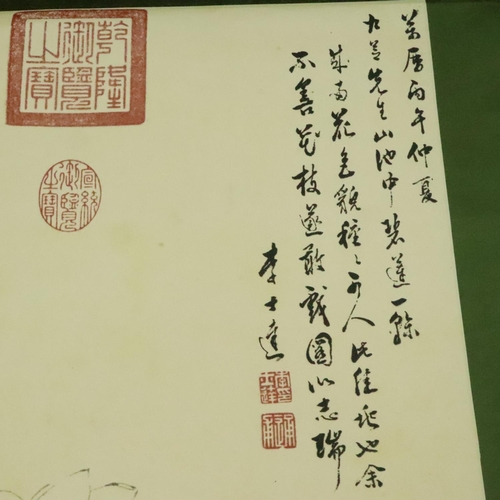 萬曆丙午仲夏
九先生山池中碧蓮一
成兩花色貌種種可人佳兆也余
不善花枝遂敢戲圖以志瑞
李士達
乾隆御覽之寶
宣統御覽之寶